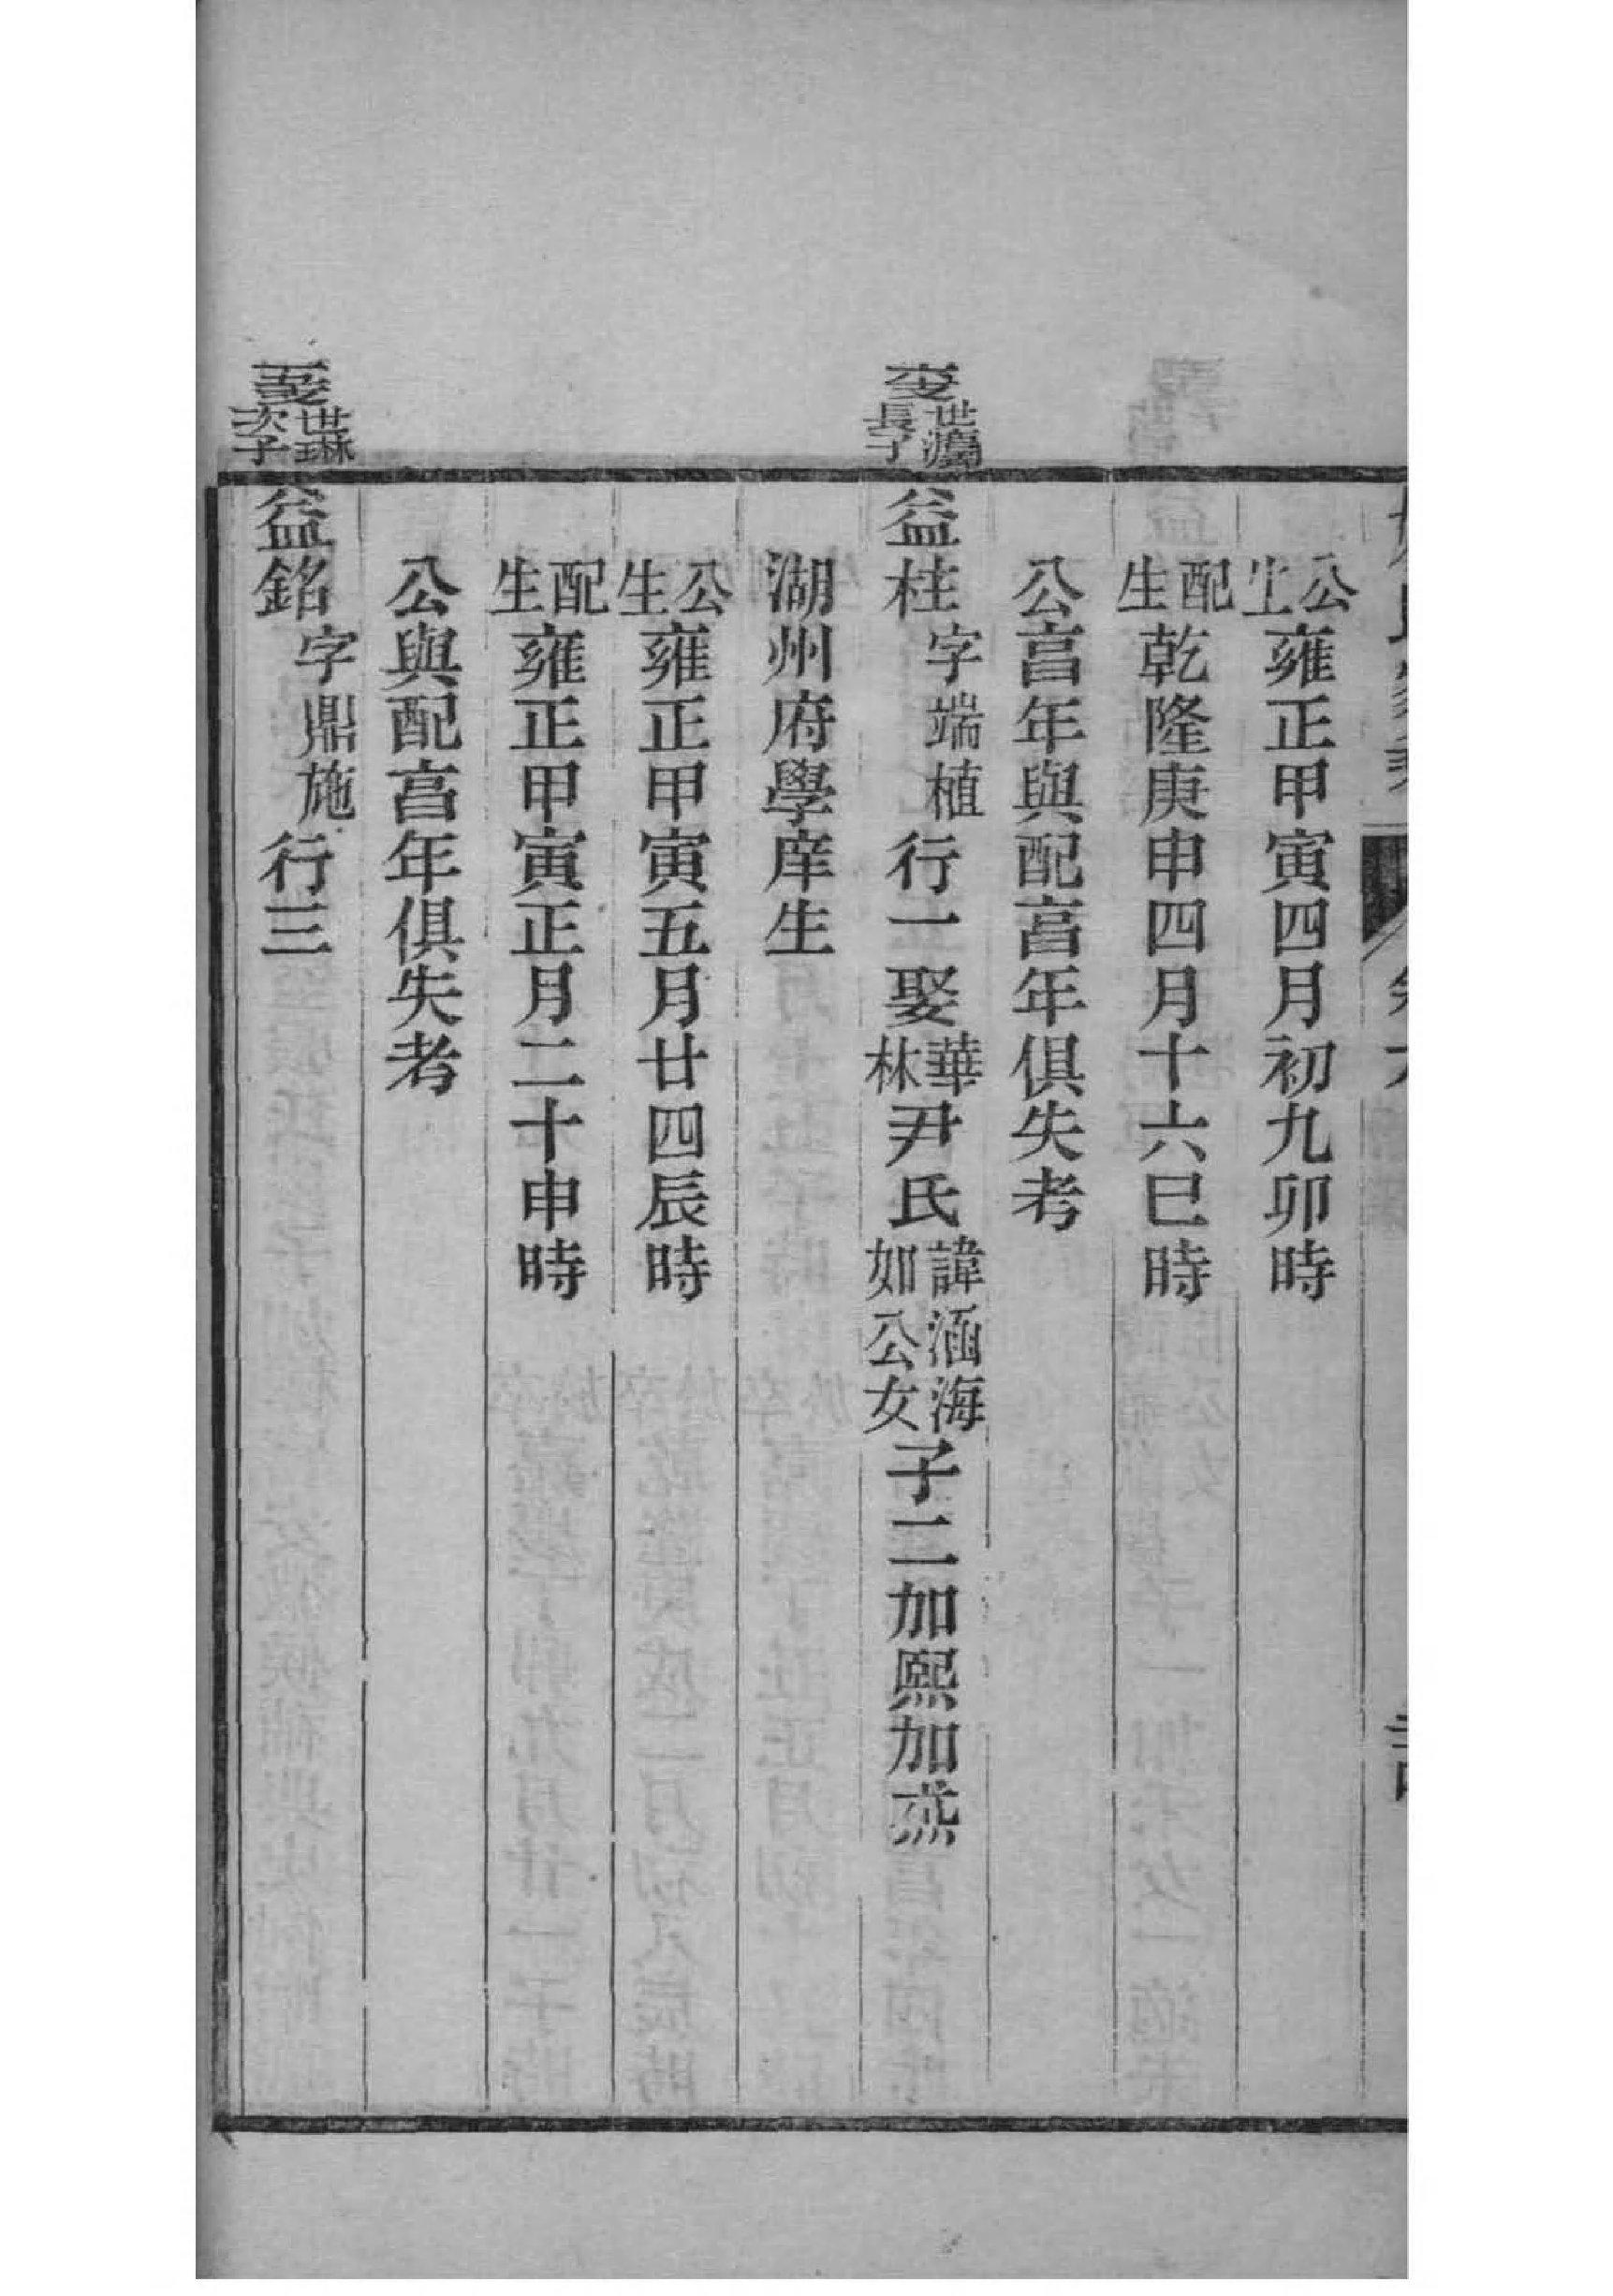 公生雍正甲寅四月初九卯時
配生乾隆庚申四月十六巳時
公亯年與配亯年俱失考
世長子
益桂字端植行一娶華林尹氏諱涵海如公女子二加熙加燕
湖州府學庠生
公生雍正甲寅五月廿四辰時
配生雍正甲寅正月二十申時
公與配亯年俱失考
世琳次子
益銘字鼎施行三